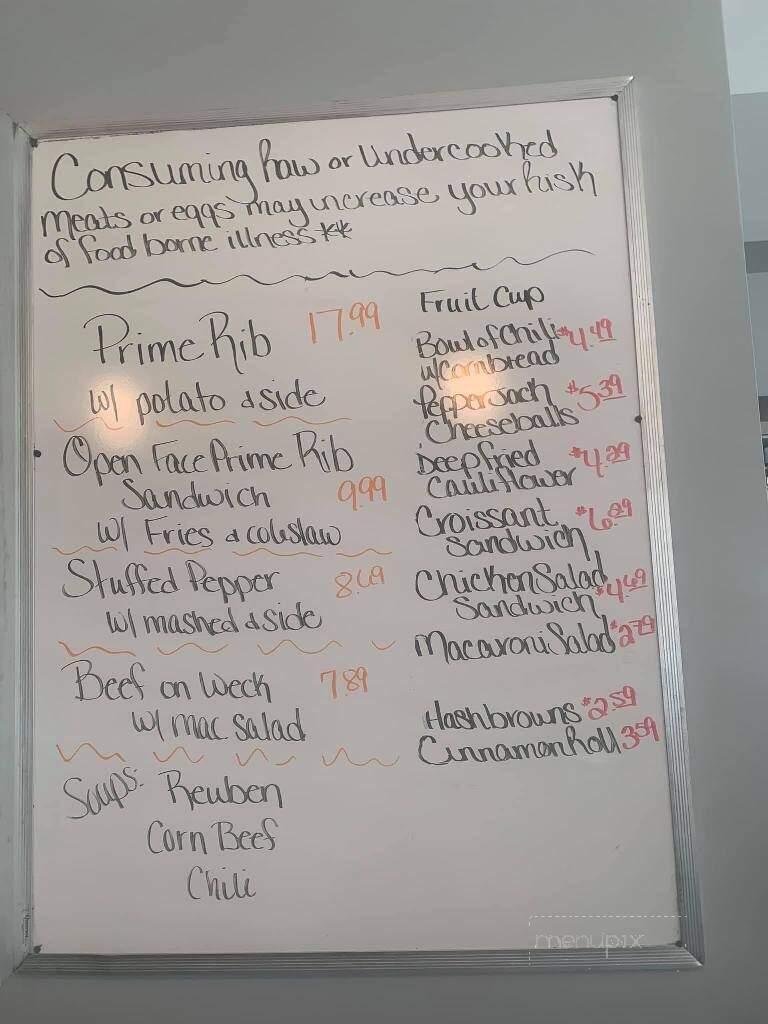 Consuming Raw or Undercooked
Meats or eggs may increase your Risk
of food borne illness **
Prime Rib 17.99
w/ potato & side
Open Face Prime Rib
Sandwich 9.99
w/ Fries & coleslaw
Stuffed Pepper 8.69
w/ mashed & side
Beef on Weck 7.89
w/ mac salad
Soups: Reuben
Corn Beef
Chili
Fruit Cup
Bowl of Chili $4.49
w/ Cornbread
PepperJack $5.39
Cheeseballs
Deep Fried $4.29
Cauliflower
Croissant $6.89
Sandwich
Chicken Salad
Sandwich $4.69
Macaroni Salad $2.79
Hashbrowns $2.59
Cinnamon Roll 3.59
menupix